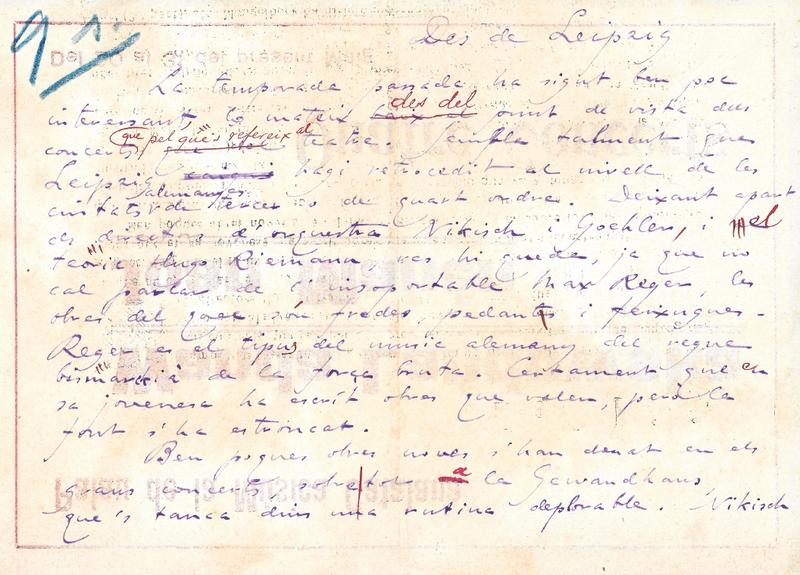 9 s.
Des de Leipzig
La temporada passada ha sigut ben poc
interessant lo mateix des del punt de vista dels
concerts que pel que's refereix al teatre. Sembla talment que
Leipzig hagi retrocedit al nivell de les
ciutats alemanyes de tercer o de quart ordre. Deixant apart
els directors d'orquestra Nikisch i Goehler, i el
teoric Hugo Riemann, res hi queda, ja que no
cal parlar de l'insoportable Max Reger, les
obres del qual són fredes, pedantes i feixugues.
Reger es el tipus del music alemany del regne
bismarckià de la força bruta. Certament que en
sa jovenesa ha escrit obres que valen, però la
font s'ha estroncat.
Ben poques obres noves s'han donat en els
grans concerts, sobretot a la Gewandhaus
que's tanca dins una rutina deplorable. Nikisch
Palau de la Música Catalana